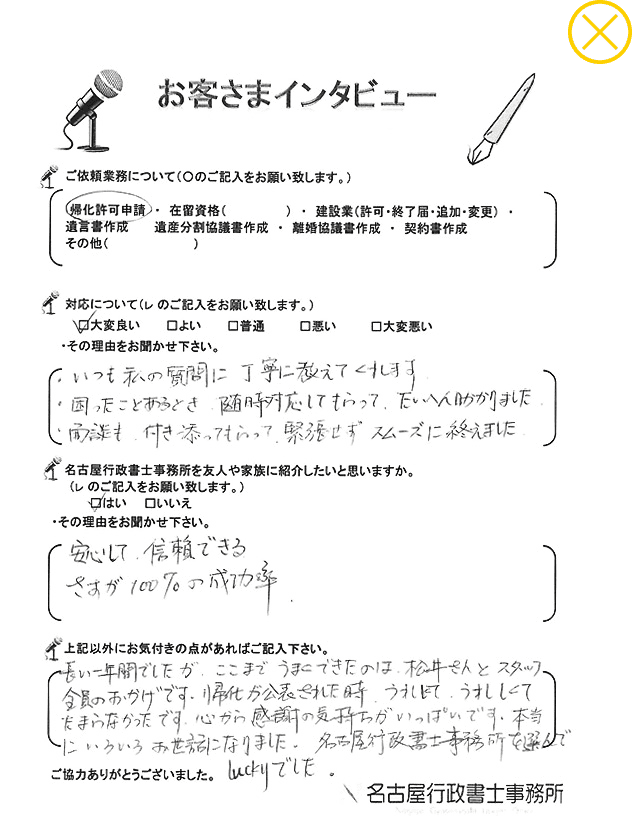 お客さまインタビュー
ご依頼業務について(○のご記入をお願い致します。)
帰化許可申請 ・ 在留資格( ) ・ 建設業(許可・終了届・追加・変更) ・
遺言書作成 遺産分割協議書作成 ・ 離婚協議書作成 ・ 契約書作成
その他( )
対応について(レ のご記入をお願い致します。)
☑大変良い □よい □普通 □悪い □大変悪い
・その理由をお聞かせ下さい。
・いつも私の質問に丁寧に教えてくれします
・困ったことあるとき、随時対応してもらって、たいへん助かりました.
・面談も、付き添ってもらって、緊張せずスムーズに終えました.
名古屋行政書士事務所を友人や家族に紹介したいと思いますか。
(レ のご記入をお願い致します。)
☑はい □いいえ
・その理由をお聞かせ下さい。
安心して、信頼できる
さすが100%の成功率.
上記以外にお気付きの点があればご記入下さい。
長い一年間でしたが、ここまでうまくできたのは、松井さんとスタッフ
全員のおかげです。帰化が公表された時、うれしくて、うれしくて
たまらなかったです。心から感謝の気持ちがいっぱいです。本当
にいろいろお世話になりました。名古屋行政書士事務所を選んで
luckyでした。
ご協力ありがとうございました。
名古屋行政書士事務所